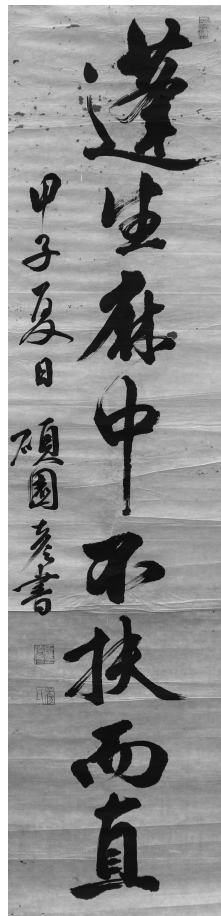 蓬生麻中不扶而直
甲子夏日 碩園彦書